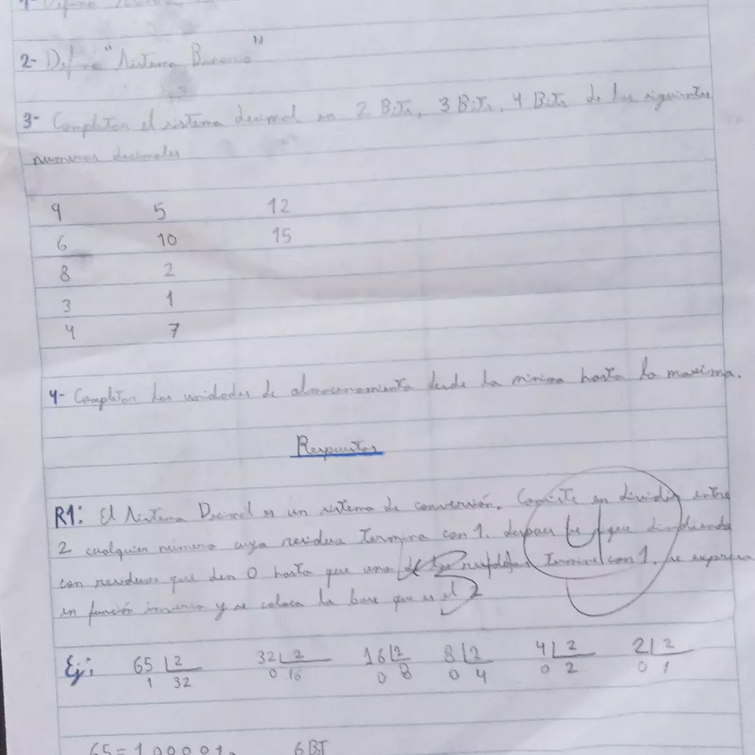 1- Defina
2- Defina "Sistema Binario"
3- Completar el sistema decimal en 2 Bits, 3 Bits, 4 Bits de los siguientes
numeros decimales
9 5 12
6 10 15
8 2
3 1
4 7
4- Completar las unidades de almacenamiento desde la minima hasta la maxima.
Respuestas
R1: El Sistema Decimal es un sistema de conversión. Consiste en dividir entre
2 cualquier numero cuyo residuo termina con 1. despues que dividiendo
con residuos que den 0 hasta que uno de los termine con 1, se expresa
en función inversa y se coloca la base que es el 2
Ej: 65 2 32 2 16 2 8 2 4 2 2 2
1 32 0 16 0 8 0 4 0 2 0 1